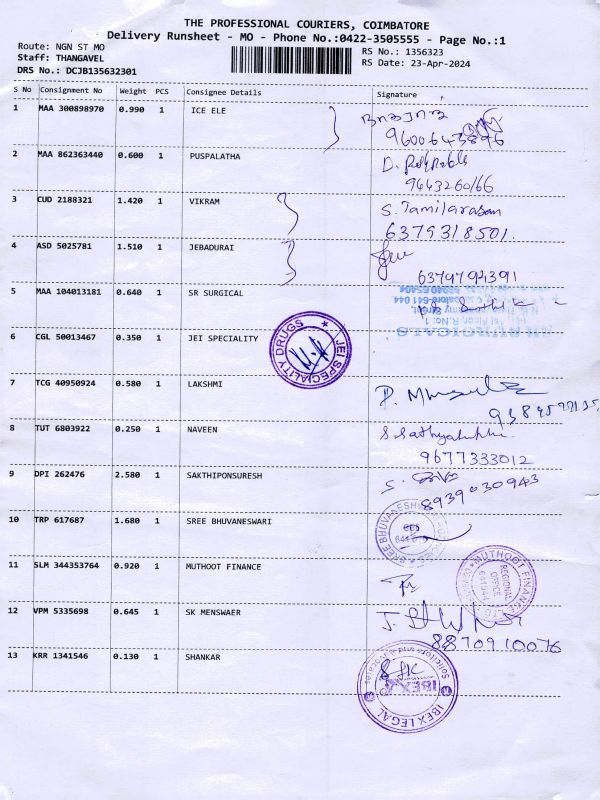 THE PROFESSIONAL COURIERS, COIMBATORE
Delivery Runsheet - MO - Phone No.:0422-3505555 - Page No.:1
Route: NGN ST MO
Staff: THANGAVEL
DRS No.: DCJB135632301
RS No.: 1356323
RS Date: 23-Apr-2024
S No Consignment No Weight PCS Consignee Details Signature
1 MAA 300898970 0.990 1 ICE ELE
9600643896
2 MAA 862363440 0.600 1 PUSPALATHA
D.
9443260166
3 CUD 2188321 1.420 1 VIKRAM S. Tamilarasan
6379318501
4 ASD 5025781 1.510 1 JEBADURAI
6379794391
5 MAA 104013181 0.640 1 SR SURGICAL
SR SURGICALS
6 CGL 50013467 0.350 1 JEI SPECIALITY
JEI SPECIALITY DRUGS
7 TCG 40950924 0.580 1 LAKSHMI
8 TUT 6803922 0.250 1 NAVEEN
9677333012
9 DPI 262476 2.580 1 SAKTHIPONSURESH
8939030943
10 TRP 617687 1.680 1 SREE BHUVANESWARI
11 SLM 344353764 0.920 1 MUTHOOT FINANCE
MUTHOOT FINANCE LTD
REGIONAL
OFFICE
12 VPM 5335698 0.645 1 SK MENSWAER
8870910076
13 KRR 1341546 0.130 1 SHANKAR
Solicitors and Advocates
IBEX
IBEX LEGAL